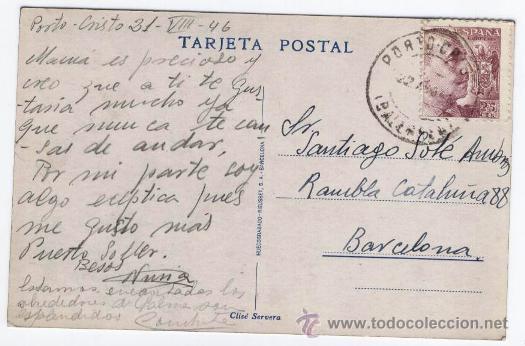 Porto-Cristo 31-VIII-46
TARJETA POSTAL
Mamá es precioso y
creo que a ti te gus-
taria mucho ya
que nunca te can-
sas de andar,
Por mi parte soy
algo eceptica pues
me gusto mas
Puerto Soller.
Besos
Nuria
Estamos encantadas los
alrededores de Palma son
esplendidos Conchita
HUECOGRABADO-RIEUSSET, S. A.-BARCELONA
Clisé Servera
ESPAÑA
PORTO-CRISTO
(BALEARES)
Sr
Santiago José
Rambla Cataluña 88
Barcelona
todocoleccion
www.todocoleccion.net